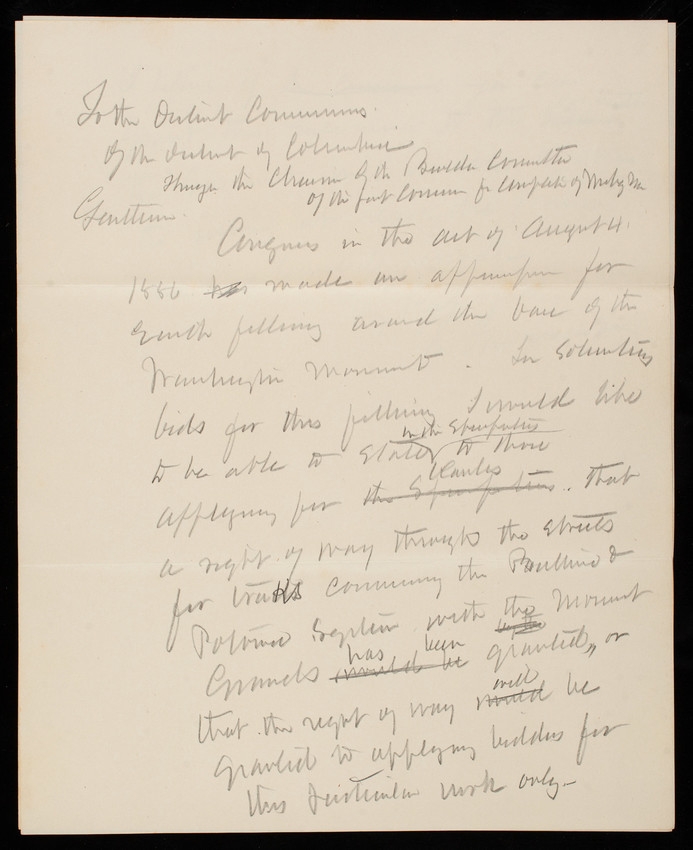 To the District Commrs.
of the District of Columbia
Through the Chairman of the Building Committee
of the Joint Commission for Completion of Wash'g Mon
Gentlemen.
Congress in the act of August 4.
1886 has made an appropn for
Earth filling around the base of the
Washington Monument. In soliciting
bids for this filling I would like
in the Specifications
to be able to State to those
blanks
applying for the Specifications. that
a right of way through the streets
for tracks connecting the Baltimore &
Potomac System with the Monument
has been
Grounds would be granted, or
will
that the right of way would be
granted to applying bidders for
this particular work only—